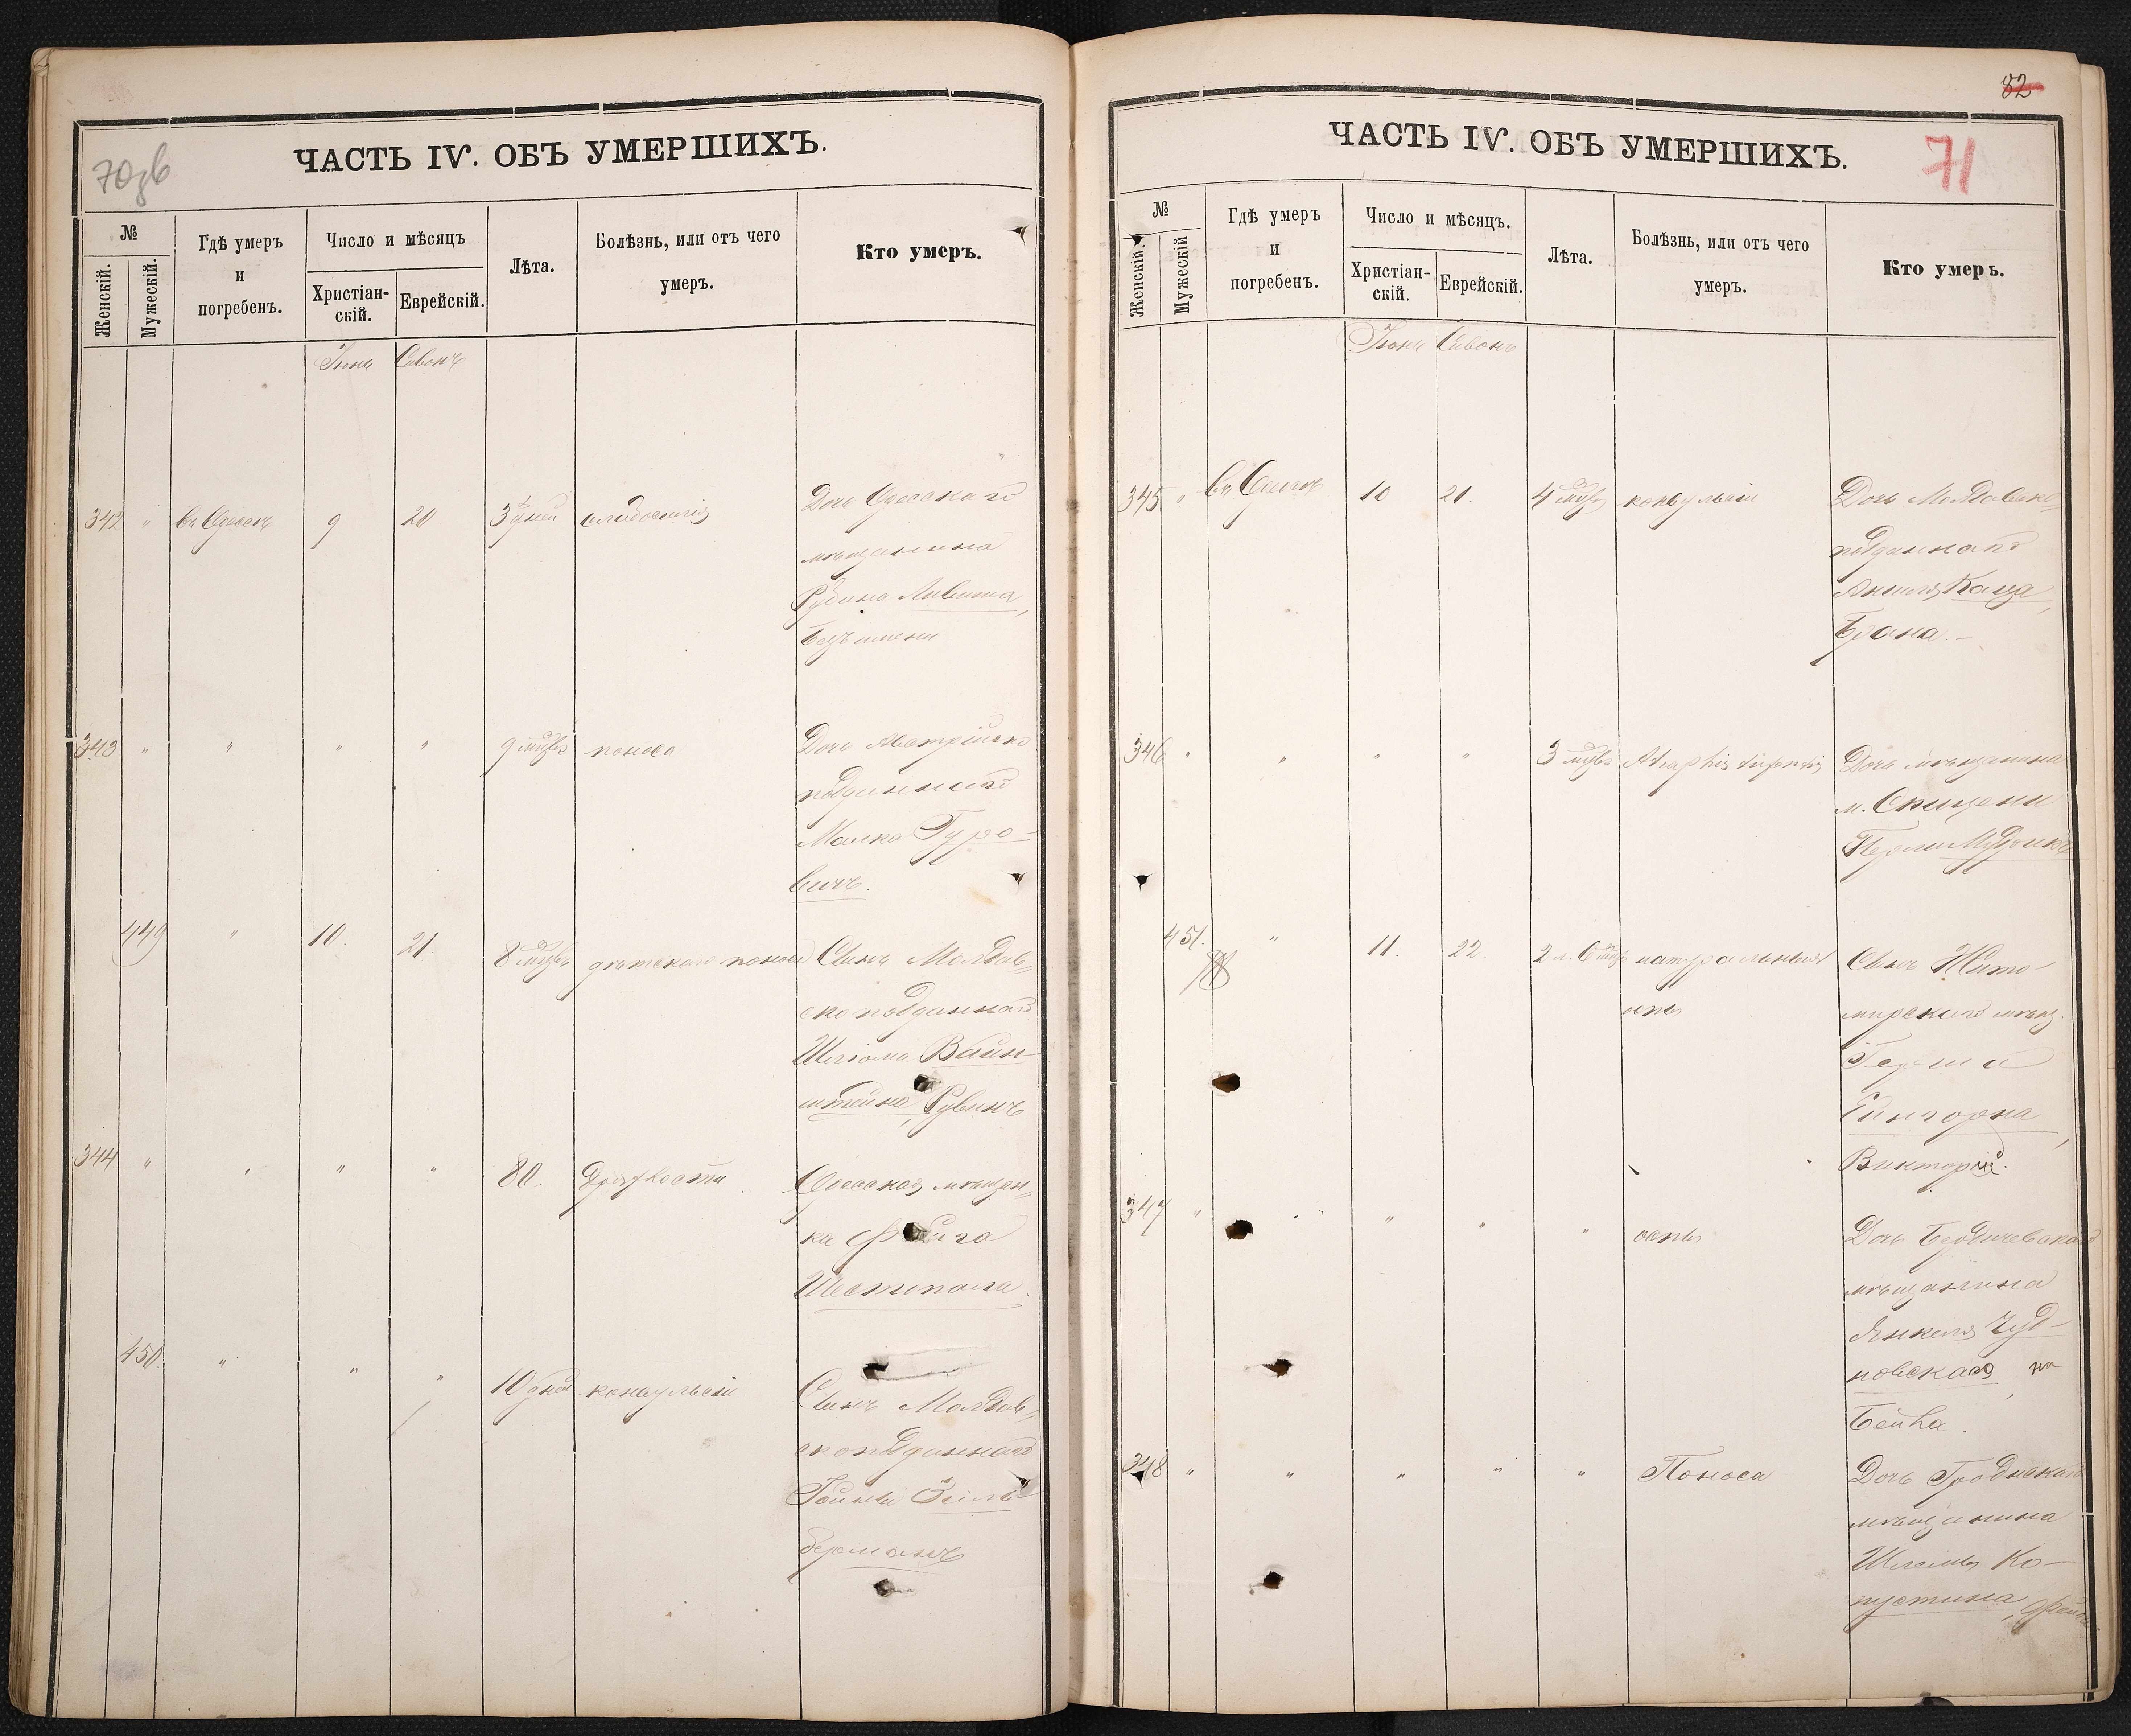 70зв
ЧАСТЬ IV. ОБЪ УМЕРШИХЪ.
№
Женскій.
Мужескій.
Гдѣ умеръ
и
погребенъ.
Число и мѣсяцъ
Христіан-
скій.
Еврейскій.
Лѣта.
Болѣзнь, или отъ чего
умеръ.
Кто умеръ.
Іюнь Сивонъ
342 " въ Одессѣ 9 20 3 дней слабости Дочь Одесскаго
мѣщанина
Рубина Ливита,
Безъ имени
343 " " " " 9 мѣс поноса Дочь Австрійско
подданнаго
Малка Гуро-
вичъ.
449 " 10. 21. 8 мѣс дѣтскаго поноса Сынъ Молдав-
скоподданнаго
Шлома Вайн-
штейна, Рувинъ
344. " " " " 80. Дряхлости Одесская мѣщан-
ка Фейга
Шестопала.
450. " " " 10 дней конвульсіи Сынъ Молдав-
скоподданнаго
Зиль-
берманъ
82
ЧАСТЬ IV. ОБЪ УМЕРШИХЪ.
71
№
Женскій.
Мужескій
Гдѣ умеръ
и
погребенъ.
Число и мѣсяцъ.
Христіан-
скій.
Еврейскій.
Лѣта.
Болѣзнь, или отъ чего
умеръ.
Кто умеръ.
Іюнь Сивонъ
345 " въ Одессѣ 10 21. 4 мѣс конвульсіи Дочь Молдавско
подданнаго
Янкеля Каца,
Брана.-
346 " " " " 3 мѣс Дочь мѣщанина
м.
451. " 11. 22. 2 л. 6 мѣс натуральныя Сынъ Жито-
оспы мирскаго мѣщ.
Герша
Гингорна,
Викторій.
347 " " " " " оспы Дочь Бердичевскаго
мѣщанина
Янкеля Чуд-
новскаго,
Бейла.
348 " " " " " Поноса Дочь Гродскаго
мѣщанина
Шлемы Ко-
пустина,